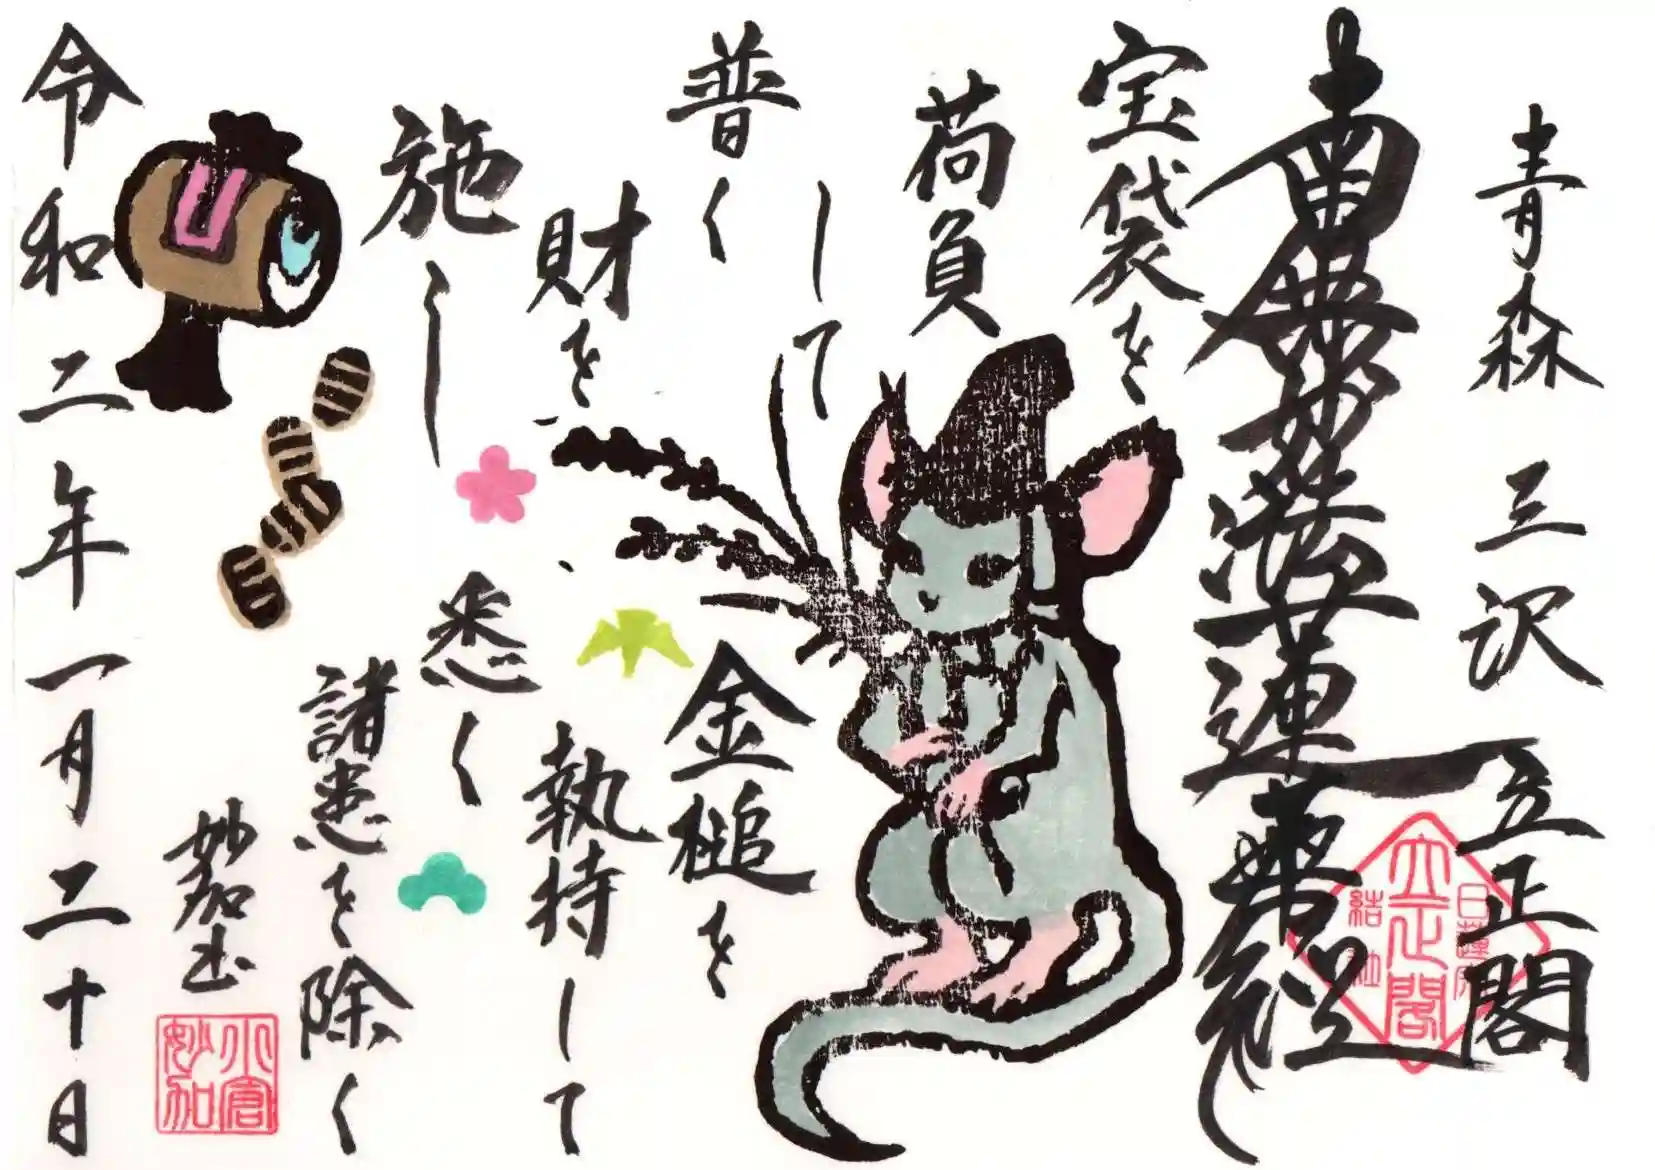 青森 三沢 立正閣
南無妙法蓮華経
宝袋を
荷負
して
普く
財を
施し
金槌を
執持して
悉く
諸悪を除く
令和二年一月二十日
妙加
立正閣
日蓮宗
結社
小倉
妙加